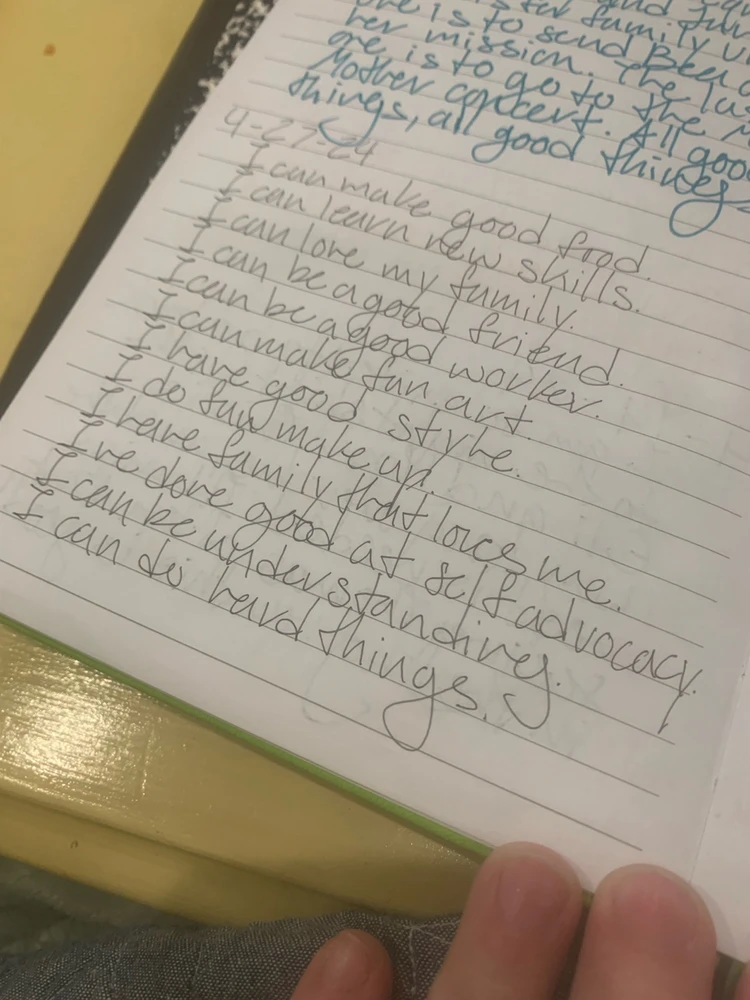 family
is to send
her mission. The
one is to go to the
Mother concert. All good
things, all good things
9-27-24
I can make good food.
I can learn new skills.
I can love my family.
I can be a good friend.
I can be a good worker.
I can make fun art.
I have good style.
I do fun make up.
I have family that loves me.
I've done good at self advocacy.
I can be understanding.
I can do hard things.